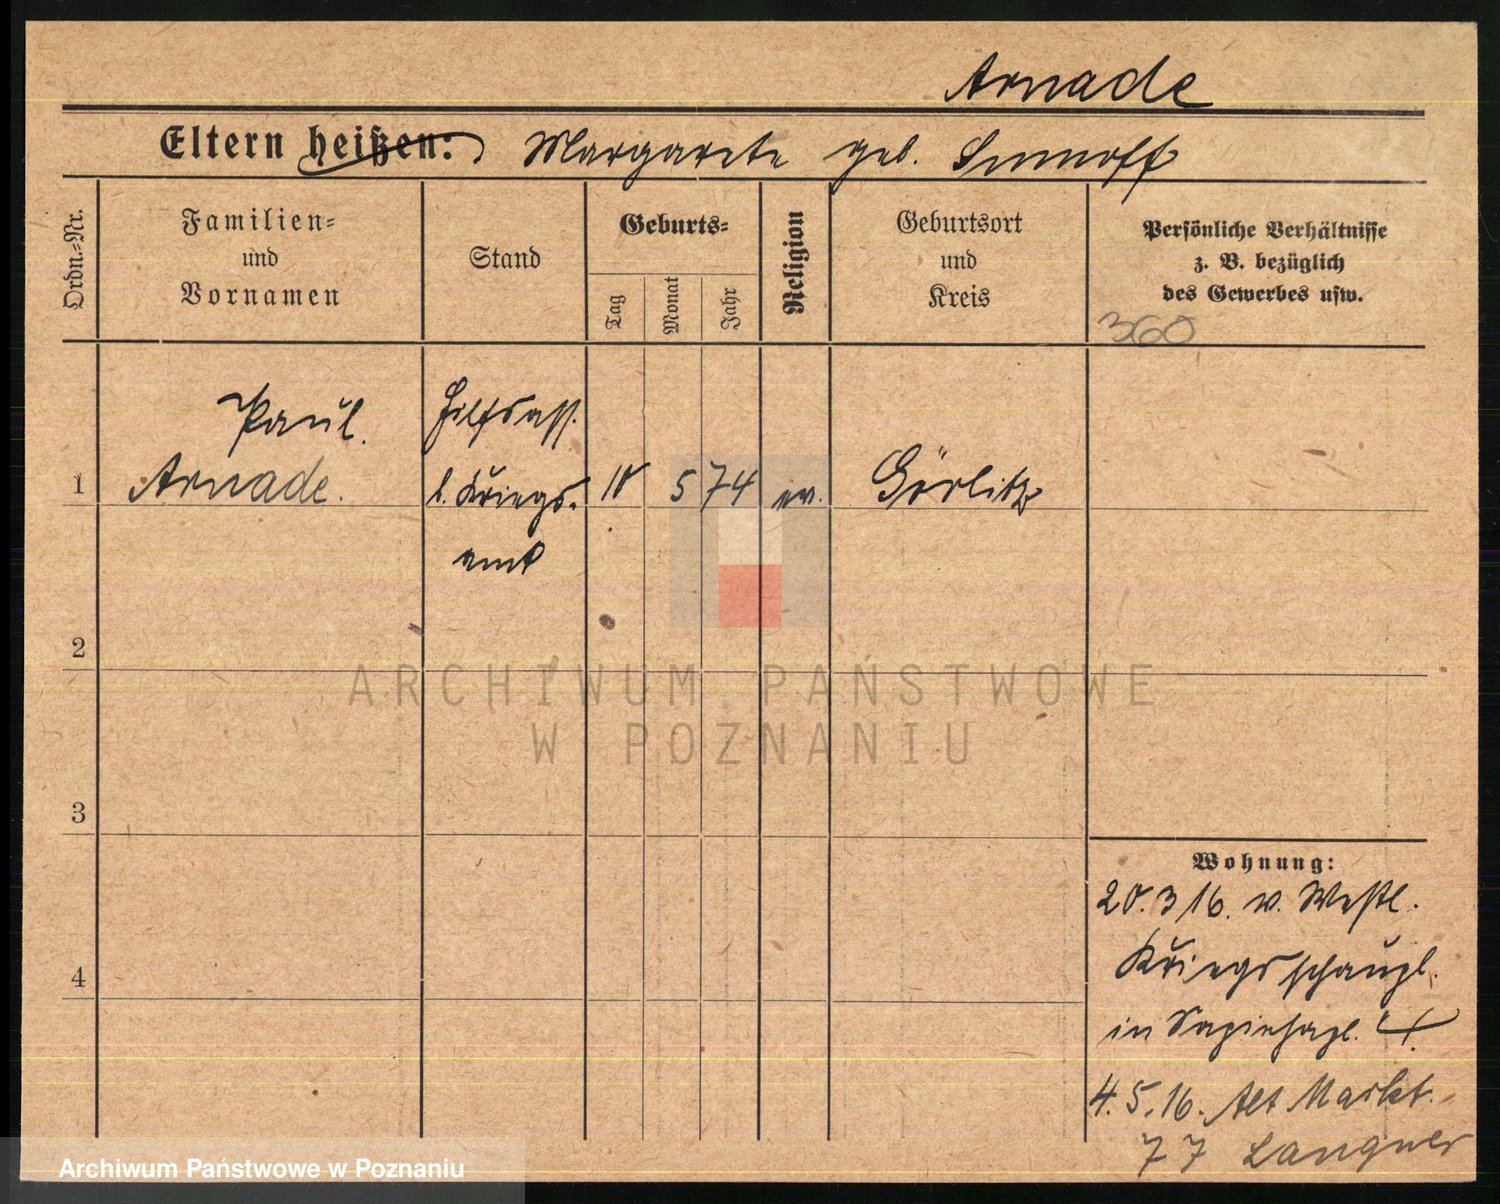 Arnade
Eltern heißen: Margarete geb.
Ordn.-Nr.
Familien-
und
Vornamen
Stand
Geburts-
Tag
Monat
Jahr
Religion
Geburtsort
und
Kreis
Persönliche Verhältnisse
z. B. bezüglich
des Gewerbes usw.
360
Paul.
Hilfsass.
1
Arnade.
b. Kriegs-
5
74
ev.
Görlitz
amt
2
3
4
Wohnung:
20.3 16. v. Westl.
Kriegsschaupl.
in Sapiehapl.
4. 5. 16. Alt Markt.
77 Langner
ARCHIWUM PAŃSTWOWE
W POZNANIU
Archiwum Państwowe w Poznaniu